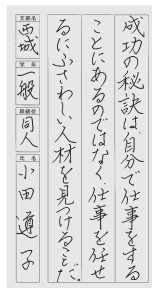 成功の秘訣は、自分で仕事をする
ことにあるのではなく、仕事を任せ
るにふさわしい人材を見つけることだ。
支部名
西城
学年
一般
段級位
同人
氏名
小田道子